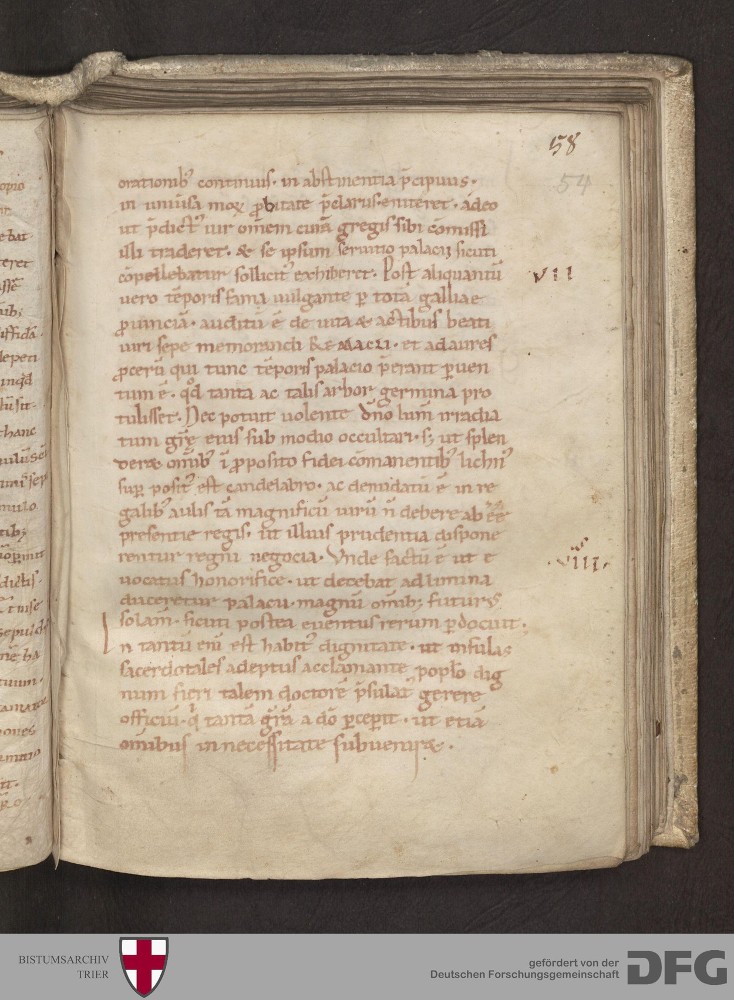 58
54
orationib; continuus· in abstinentia p̄cipuus·
in uniu̅sa moꝝ ꝓbitate p̄clarus eniteret· adeo
ut p̄dict᷒ uir om̄em curā gregis sibi cōmissi
illi traderet· & se ipsum seruitio palacii sicuti
cōpellebatur sollicit᷒ exhiberet· Post aliquantū
VII
uero tēporis fama uulgante ꝑ totā galliae
ꝓuinciā· auditū ē de uita & actibus beati
uiri sepe memorandi REMACLI· et ad aures
ꝓcerū qui tunc tēporis palacio p̄erant ꝑuen
tum ē· qd̄ tanta ac talis arbor germina pro
tulisset· Nec potuit uolente dn̄o lum̄ irradia
tum grē eius sub modio occultari· s; ut splen
deret om̄ib; ī ꝓposito fidei cōmanentib; lichn᷒
suꝑ posit᷒ est candelabro· ac denudatū ē in re
galib; aulis tā magnificū uirū n̄ debere ab eē
presentie regis· ut illius prudentia dispone
rentur regni negocia· Vnde factū ē ut e
VIII
uocatus honorifice· ut decebat ad limina
duceretur palacii· magnū om̄ib; futur᷒
solam̄· sicuti postea euentus rerum ꝑdocuit·
In tantū eni̅ est habit᷒ dignitate· ut infulas
sacerdotales adeptus acclamante poplo dig
num fieri talem doctorē p̄sulat᷒ gerere
officiū· q̇ tantā grā̅ a dō ꝑcepit· ut etiā
om̄ibus in necessitate subueniret·
BISTUMSARCHIV
TRIER
gefördert von der
Deutschen Forschungsgemeinschaft
DFG